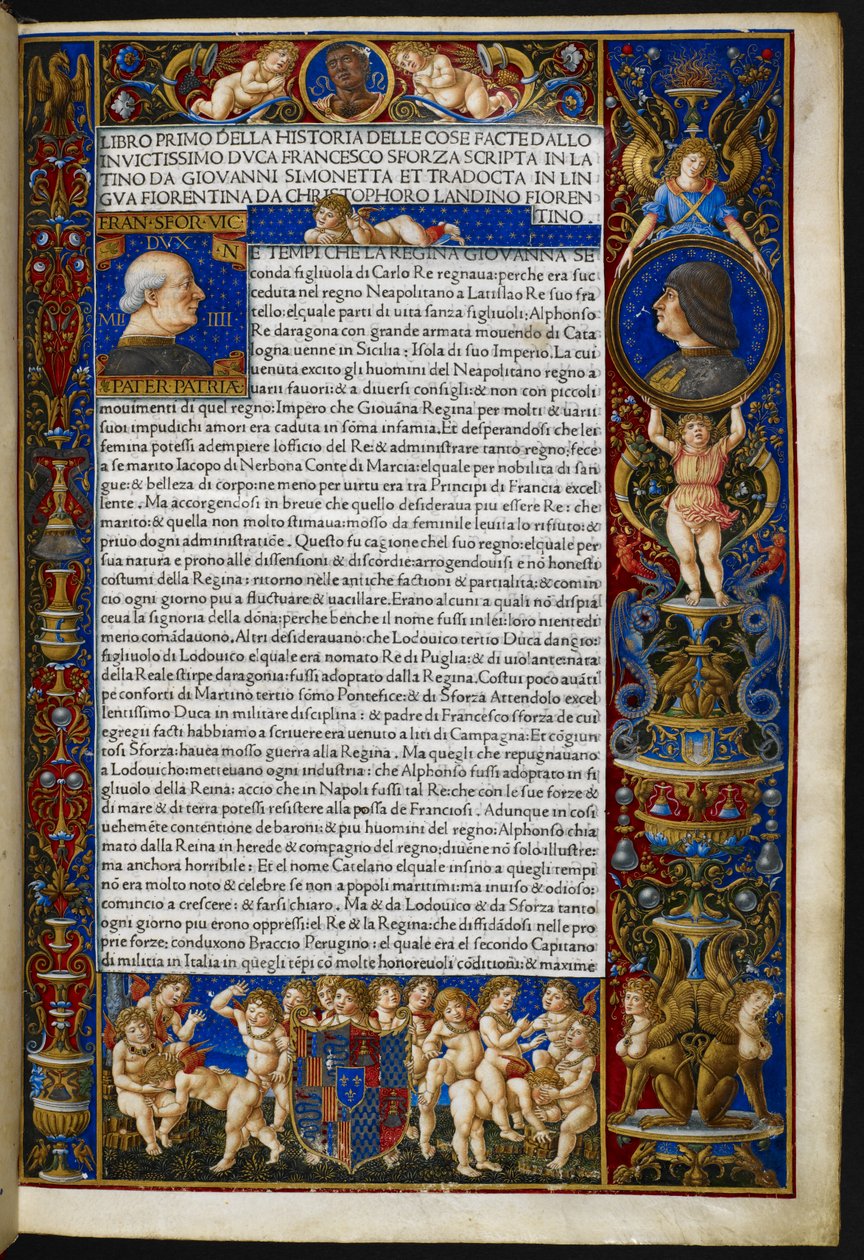 LIBRO PRIMO DELLA HISTORIA DELLE COSE FACTE DALLO
INVICTISSIMO DVCA FRANCESCO SFORZA SCRIPTA IN LA
TINO DA GIOVANNI SIMONETTA ET TRADOCTA IN LIN
GVA FIORENTINA DA CHRISTOPHORO LANDINO FIOREN
TINO.
FRAN·SFOR·VIC
DVX
N
MLI
IIII
PATER·PATRIÆ
E TEMPI CHE LA REGINA GIOVANNA SE
conda figliuola di Carlo Re regnaua: perche era suc
ceduta nel regno Neapolitano a Latislao Re suo fra
tello: elquale parti di uita sanza figliuoli: Alphonso
Re daragona con grande armata mouendo di Cata
logna uenne in Sicilia: Isola di suo Imperio. La cui
uenuta excito gli huomini del Neapolitano regno a
uarii fauori: & a diuersi consigli: & non con piccoli
mouimenti di quel regno: Impero che Giouãna Regina per molti & uarii
suoi impudichi amori era caduta in soma infamia. Et desperandosi che lei
femina potessi adempiere lofficio del Re: & administrare tanto regno: fece
a se marito Iacopo di Nerbona Conte di Marcia: elquale per nobilita di san
gue: & belleza di corpo: ne meno per uirtu era tra Principi di Francia excel
lente. Ma accorgendosi in breue che quello desideraua piu essere Re: che
marito: & quella non molto stimaua: mosso da feminile leuita lo rifiuto: &
priuo dogni administratiõe. Questo fu cagione chel suo regno: elquale per
sua natura e prono alle dissensioni & discordie: arrogendouisi e nõ honesti
costumi della Regina: ritorno nelle antiche factioni & partialita: & comin
cio ogni giorno piu a fluctuare & uacillare. Erano alcuni a quali nõ dispia
ceua la signoria della dõna: perche benche il nome fussi in lei: loro niente di
meno comãdauono. Altri desiderauano: che Lodouico tertio Duca dangio:
figliuolo di Lodouico elquale era nomato Re di Puglia: & di uiolante: nata
della Reale stirpe daragonia: fussi adoptato dalla Regina. Costui poco auãti
pe conforti di Martino tertio sõmo Pontefice: & di Sforza Attendolo excel
lentissimo Duca in militare disciplina: & padre di Francesco sforza de cui
egregii facti habbiamo a scriuere era uenuto a liti di Campagna: Et cõgiun
tosi Sforza: hauea mosso guerra alla Regina. Ma quegli che repugnauano
a Lodouicho: metteuano ogni industria: che Alphonso fussi adoptato in fi
gliuolo della Reina: accio che in Napoli fussi tal Re: che con le sue forze &
di mare & di terra potessi resistere alla possa de Franciosi. Adunque in cosi
uehemẽte contentione de baroni: & piu huomini del regno: Alphonso chia
mato dalla Reina in herede & compagno del regno: diuẽne nõ solo illustre:
ma anchora horribile: Et el nome Catelano elquale insino a quegli tempi
nõ era molto noto & celebre se non a popoli maritimi: ma inuiso & odioso:
comincio a crescere: & farsi chiaro. Ma & da Lodouico & da Sforza tanto
ogni giorno piu erono oppressi: el Re & la Regina: che diffidãdosi nelle pro
prie forze: conduxono Braccio Perugino: el quale era el secondo Capitano
di militia in Italia in quegli tẽpi cõ molte honoreuoli cõditioni: & maxime